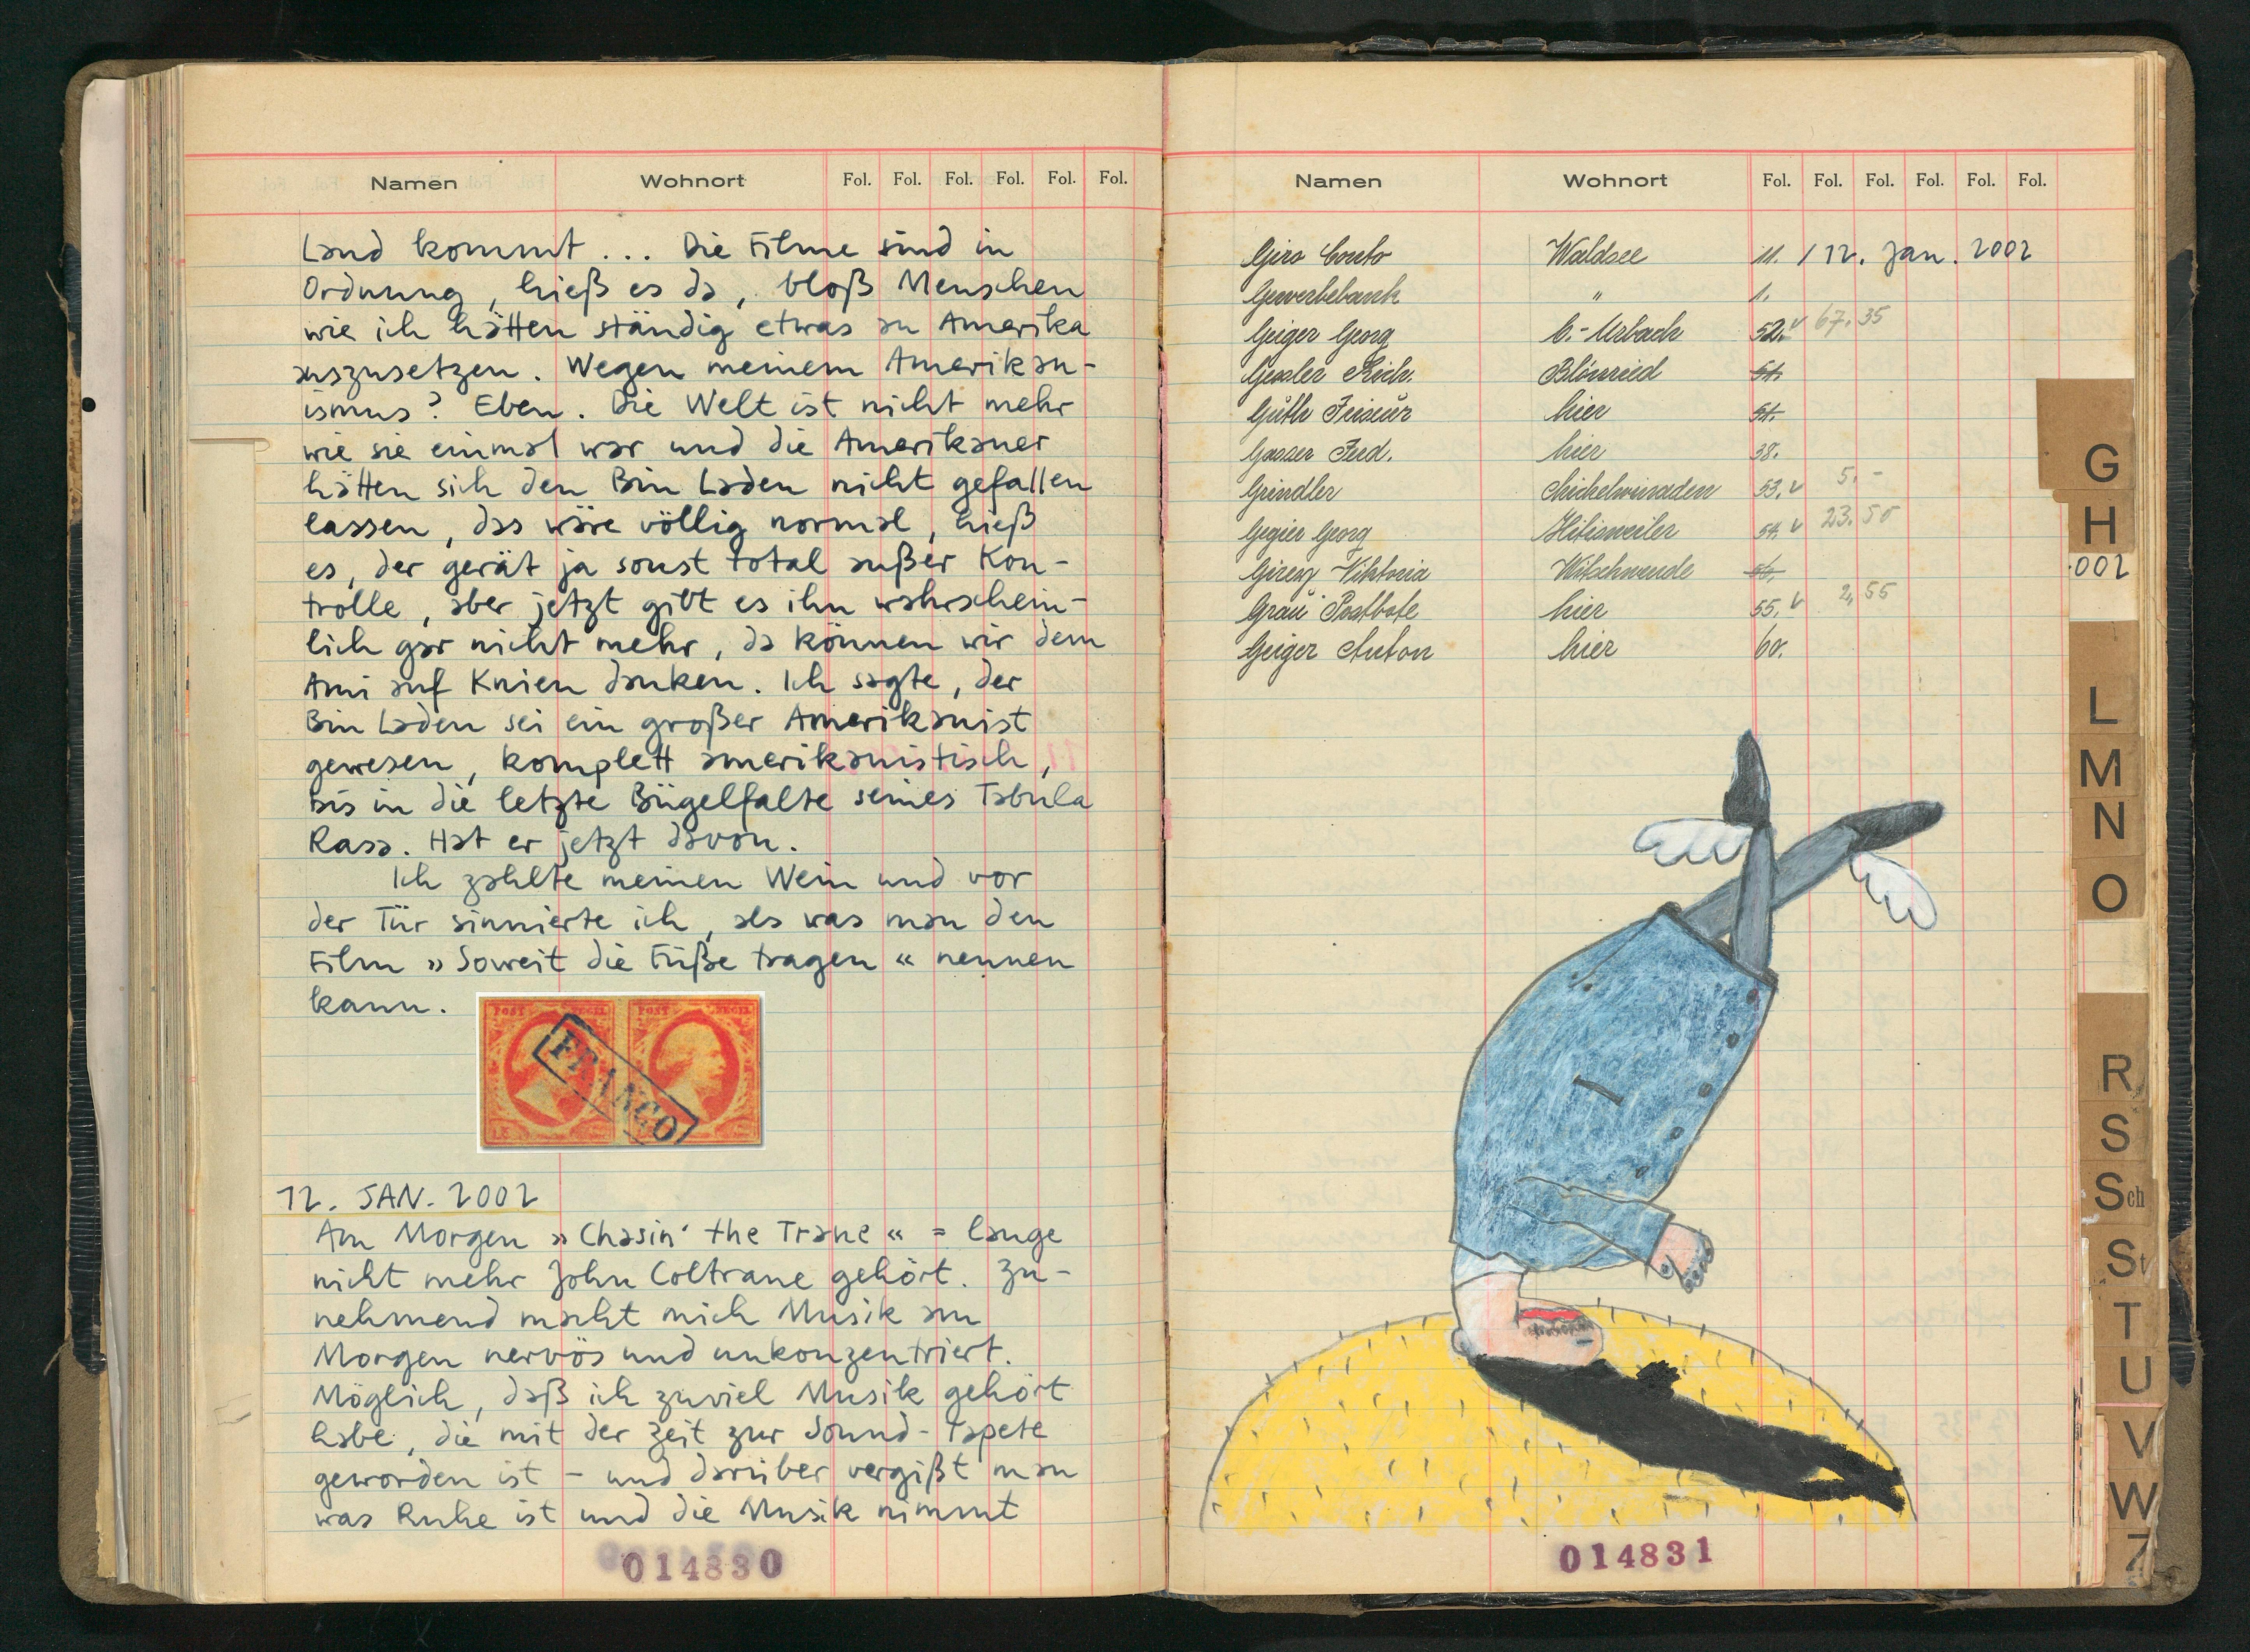 Namen Wohnort Fol. Fol. Fol. Fol. Fol. Fol.
Land kommt... Die Filme sind in
Ordnung, hieß es da, bloß Menschen
wie ich hätten ständig etwas an Amerika
auszusetzen. Wegen meinem Amerikan-
ismus? Eben. Die Welt ist nicht mehr
wie sie einmal war und die Amerikaner
hätten sich den Bin Laden nicht gefallen
lassen, das wäre völlig normal, hieß
es, der gerät ja sonst total außer Kon-
trolle, aber jetzt gibt es ihn wahrschein-
lich gar nicht mehr, da können wir dem
Ami auf Knien danken. Ich sagte, der
Bin Laden sei ein großer Amerikanist
gewesen, komplett amerikanistisch,
bis in die letzte Bügelfalte seines Tabula
Rasa. Hat er jetzt davon.
Ich zahlte meinen Wein und vor
der Tür sinnierte ich, als was man den
Film »Soweit die Füße tragen« nennen
kann.
POST ZEGEL POST ZEGEL
FRANCO
12. JAN. 2002
Am Morgen »Chasin' the Trane« = lange
nicht mehr John Coltrane gehört. Zu-
nehmend macht mich Musik am
Morgen nervös und unkonzentriert.
Möglich, daß ich zuviel Musik gehört
habe, die mit der Zeit zur Sound-Tapete
geworden ist - und darüber vergißt man
was Ruhe ist und die Musik nimmt
014830
Namen Wohnort Fol. Fol. Fol. Fol. Fol. Fol.
Giro Conto Waldsee 11. / 12. Jan. 2002
Gewerbebank " 1.
Geiger Georg -Urbach 52. 67.35
Gessler Rich. Blönried 51.
Güth Friseur hier 51.
Gasser Ferd. hier 38.
Grindler Michelwinnaden 53. 5.-
Georg 54. 23.50
Viktoria 56.
Grau Postbote hier 55. 2,55
Geiger Anton hier 60.
G
H
002
L
M
N
O
R
S
Sch
St
T
U
V
W
Z
014831